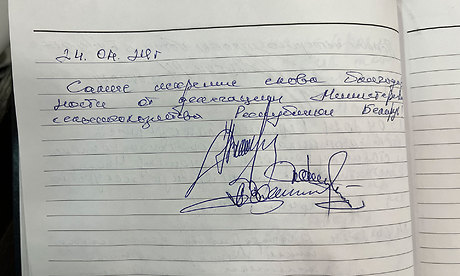 24. 04. 24г
Самые искренние слова благодар
ности от делегации Министерс
сельскохозяйства Республики Беларусь